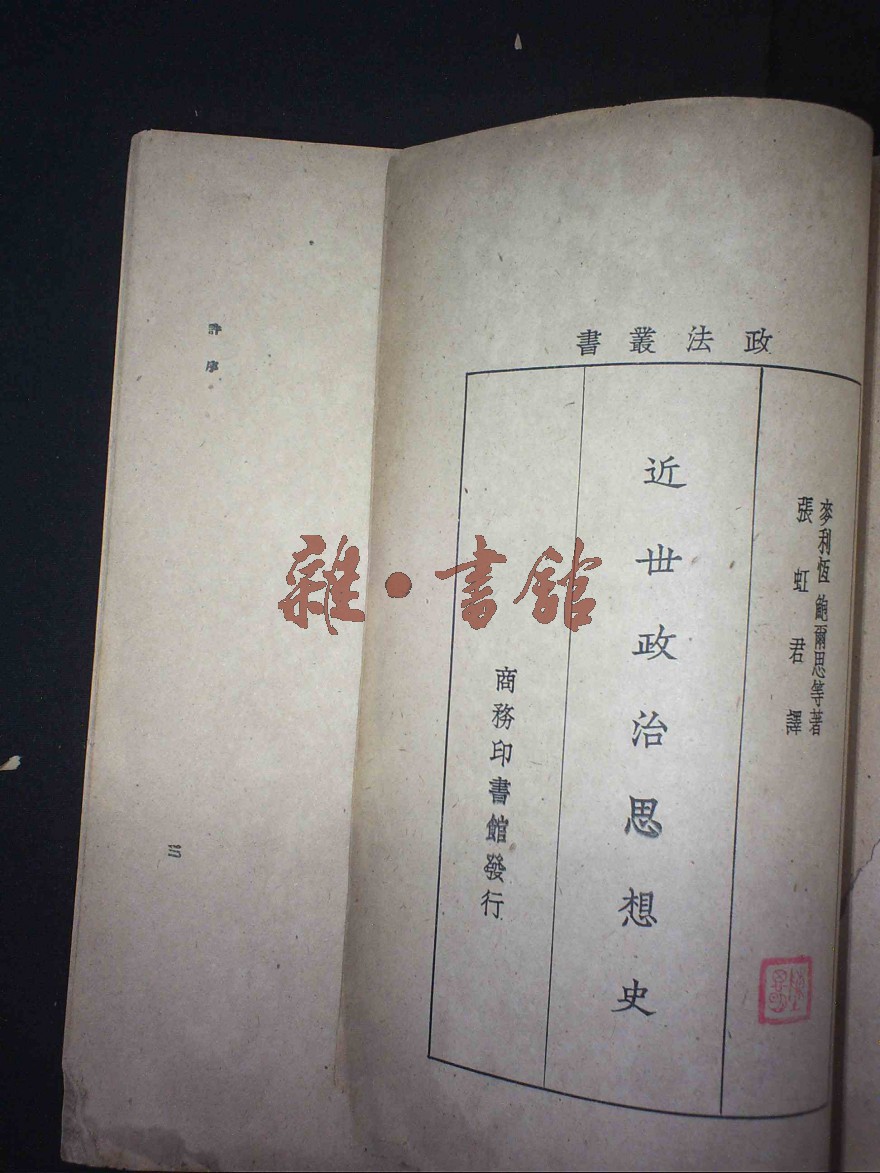 政法叢書
麥利恆 鮑爾思等著
張虹君譯
近世政治思想史
商務印書館發行
許序
三
雜·書館